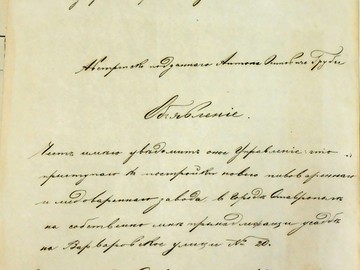 Австрійско подданнаго Антона Грубы
Объявленіе.
Честь имѣю уведомить оное Управленіе что
приступаю к постройки новаго пивовареннаго
и медовареннаго завода в Городе Ставрополе
на собственно мнѣ принадлежащи усадьбе
на Варваровской улицы № 20.